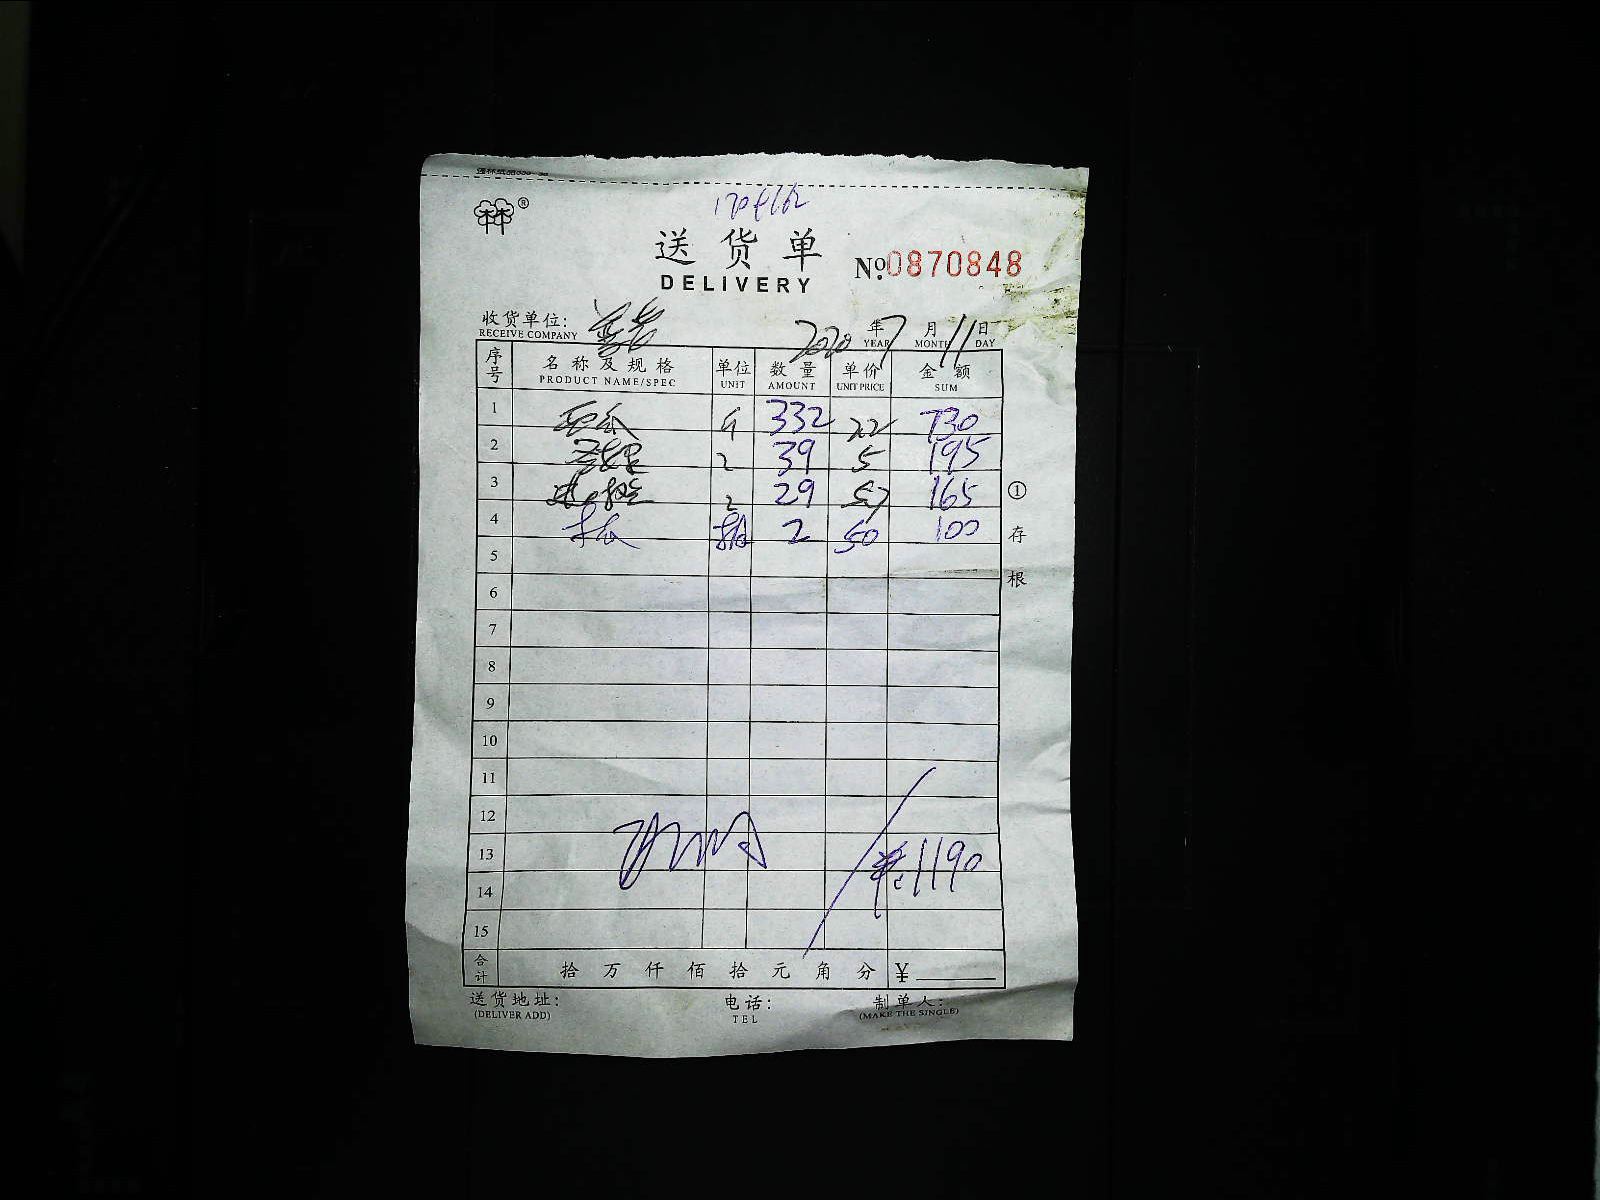 送货单
DELIVERY
No.0870848
收货单位:
RECEIVE COMPANY
2020 年 7 月 11 日
YEAR MONTH DAY
序号 名称及规格 单位 数量 单价 金额
PRODUCT NAME/SPEC UNIT AMOUNT UNIT PRICE SUM
1 西瓜 斤 332 22 730
2 39 5 195
3 29 57 165
4 2 50 100
5
6
7
8
9
10
11
12
13 1190
14
15
合计 拾 万 仟 佰 拾 元 角 分 ¥
①存根
送货地址: 电话: 制单人:
(DELIVER ADD) TEL (MAKE THE SINGLE)